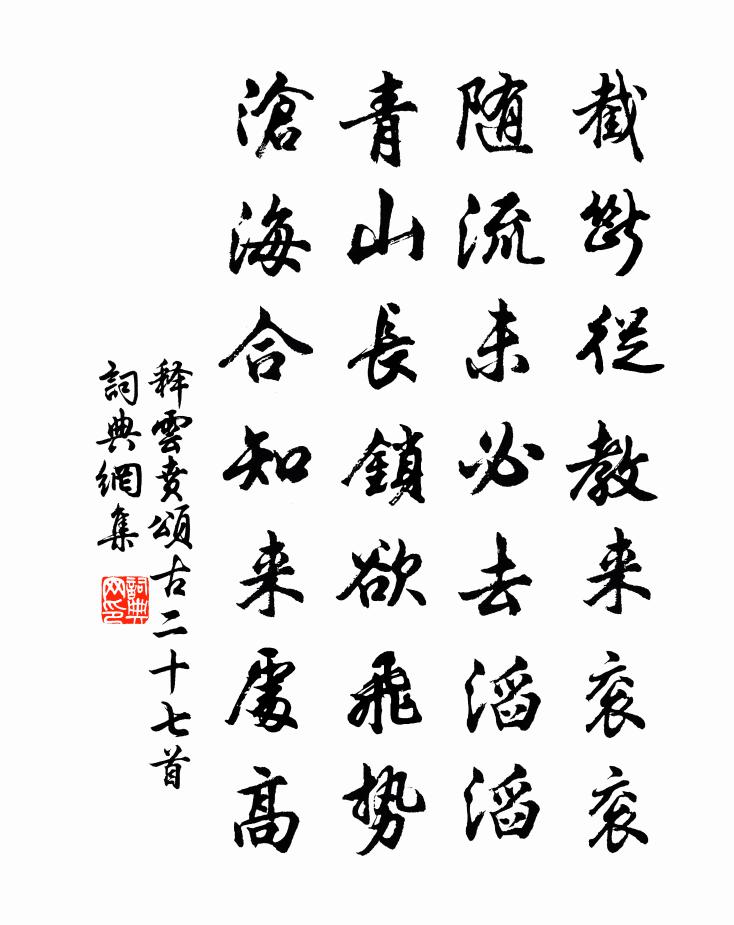 截斷從教来衮衮
随流未必去滔滔
青山長鎖欲飛勢
滄海合知来處高
释雲賁頌古二十七首
詞典網集
詞典網印